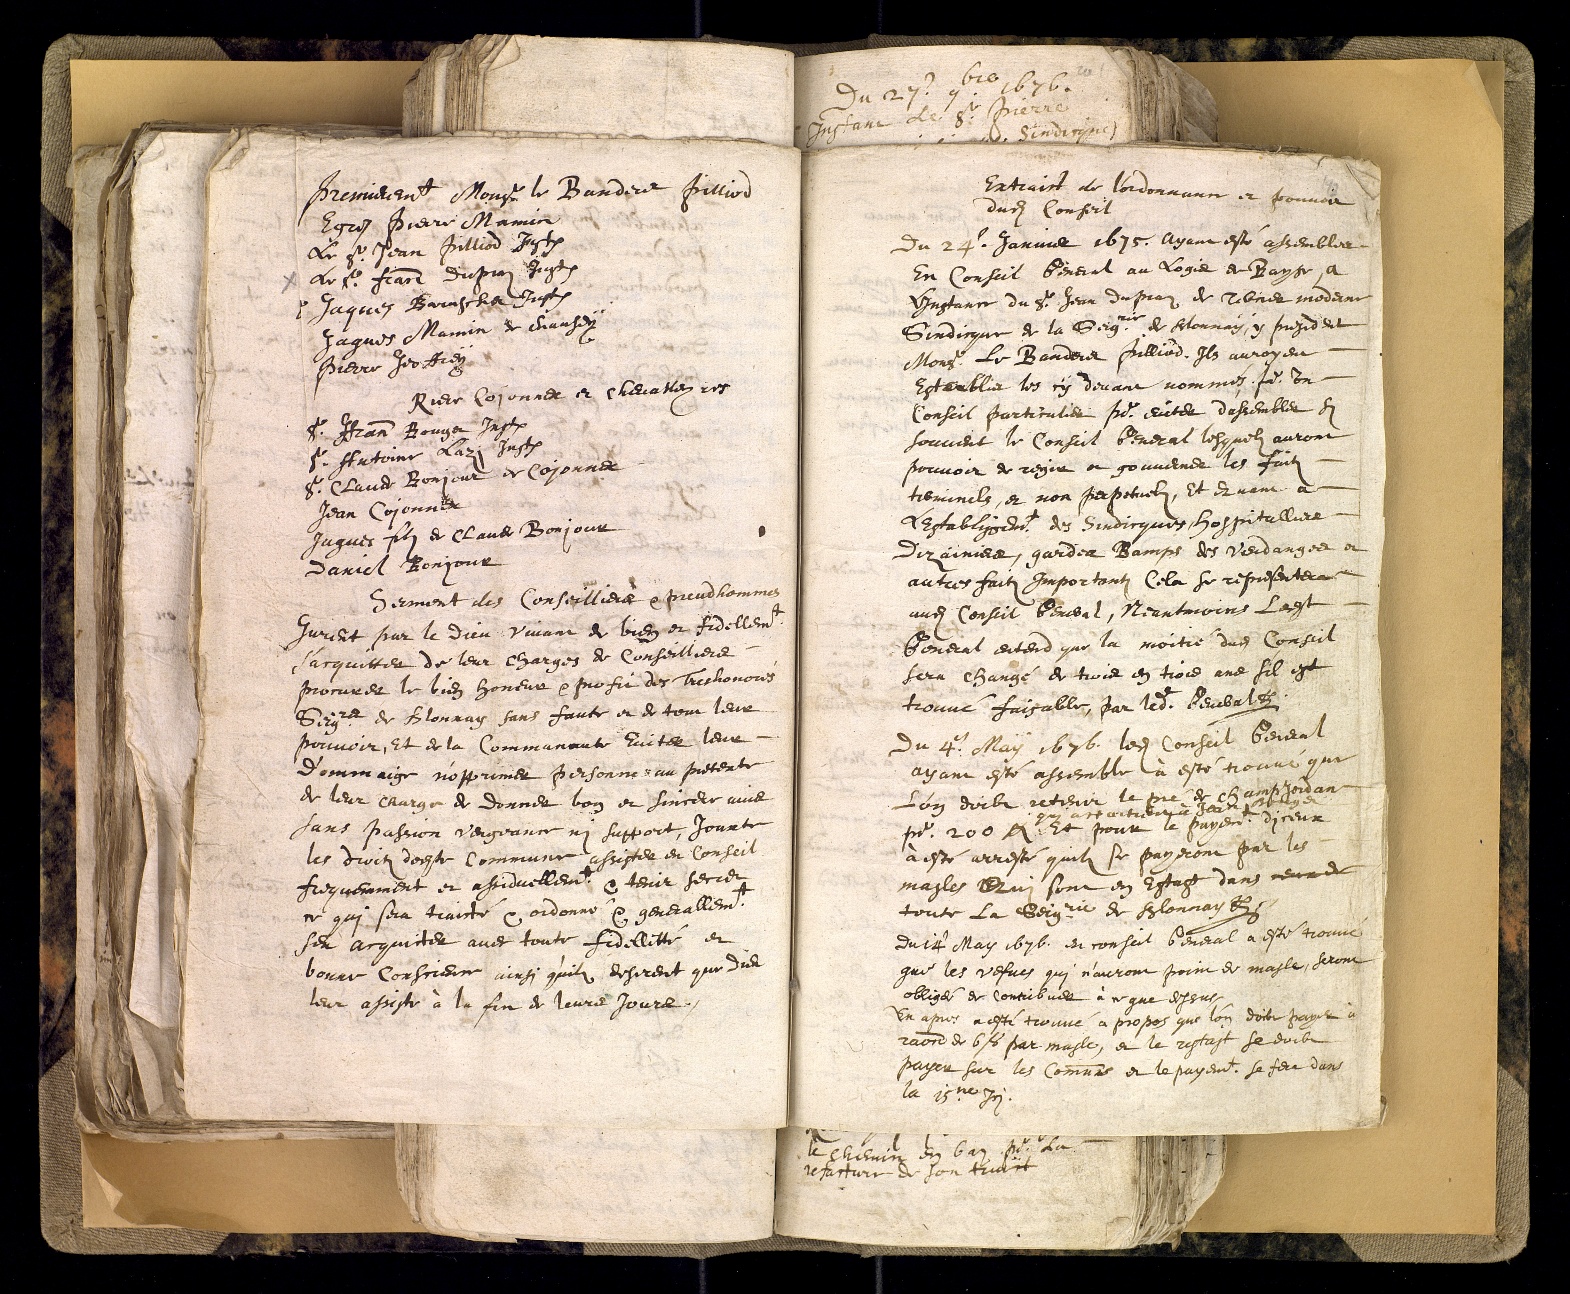 Premierem.t Mons.r le Banderet Pilliod
Egrej Pierre Mamin
Le S.r Jean Pilliod Just.
Le S.r Fran. Duprez Just.
Jaques Just.
Jaques Mamin de
Pierre
Riere Cojonnex et Chevalleyres
S.r Fran. Bonge Just.
S.r Antoine Just.
S.r Claude Bonjour de Cojonnex
Jean Cojonnex
Jaques filz de Claude Bonjour
Daniel Bonjour
Serment des Conseilliers & preudhommes
Jurent par le Dieu vivant de bien et fidellem.t
s'acquitter de leur charges de Conseilliers
procurer le bien honneur & profit des Treshonorés
Seig.rs de Blonnay sans faute et de tout leur
pouvoir, Et de la Communauté Eviter leur
Dommaige n'opprimer personne au pretexte
de leur charge de donner bon et sincere avis
sans passion vengeance ny support, Jouxte
les droitz deste Commune assister en Conseil
frequemment et assiduellem.t & tenir secret
ce qui sera traitté & ordonné & generallem.t
sen acquitter avec toute fidellitté et
bonne Conscience ainsi quilz desirent que Dieu
leur assiste à la fin de leurs Jours.
Du 27.e 9 bre 1676.
Instant le S.r Pierre
Sindicque
Extraict de l'ordonnance et pouvoir
dud Conseil
Du 24.e Janvier 1675. Ayant esté assemblés
En Conseil General au Logis de Baye, a
L'Instance du S.r Jean Duprez, de moderne
Sindicque de la Seig.rie de Blonnay, y president
Mons.r Le Banderet Pilliod. Ils auroyent
Establis les cy devant nommés p.r Un
Conseil particulier p.r eviter dassembler sy
souvent le Conseil General lesquelz auront
pouvoir de regir et gouverner les faitz
terminels, et non perpetuels, Et quant a
L'Establissem.t des Sindicques, Hospitallier
Dizainier, gardes Bamps des Vendanges et
autres faitz Importantz Cela se representera
aud Conseil General, Neantmoins Led.t
General entend que la moitié dud Conseil
sera changé de trois en trois ans sil est
trouvé faisable, par led.t General
Du 4.e May 1676. led Conseil General
ayant esté assemblé à esté trouvé que
L'on doibt retenir le pré de champ Jordan
qui appartient à Jean
p.r 200 Et pour le payem.t Diceux
à esté arresté quilz se payeront par les
masles Qui sont en Estast dans
toute La Seig.rie de Blonnay
Du 14.e May 1676. en conseil General a esté trouvé
que les vefves qui n'auront point de masle, seront
obligés de contribuer à ce que dessus
En apres a esté trouvé a propos que lon doibt payer à
de 6 par masle, et le restast se doibt
payer sur les Comuns et le payem.t se fera dans
la 15.ne
le chemin en bas p.r La
refacture de son